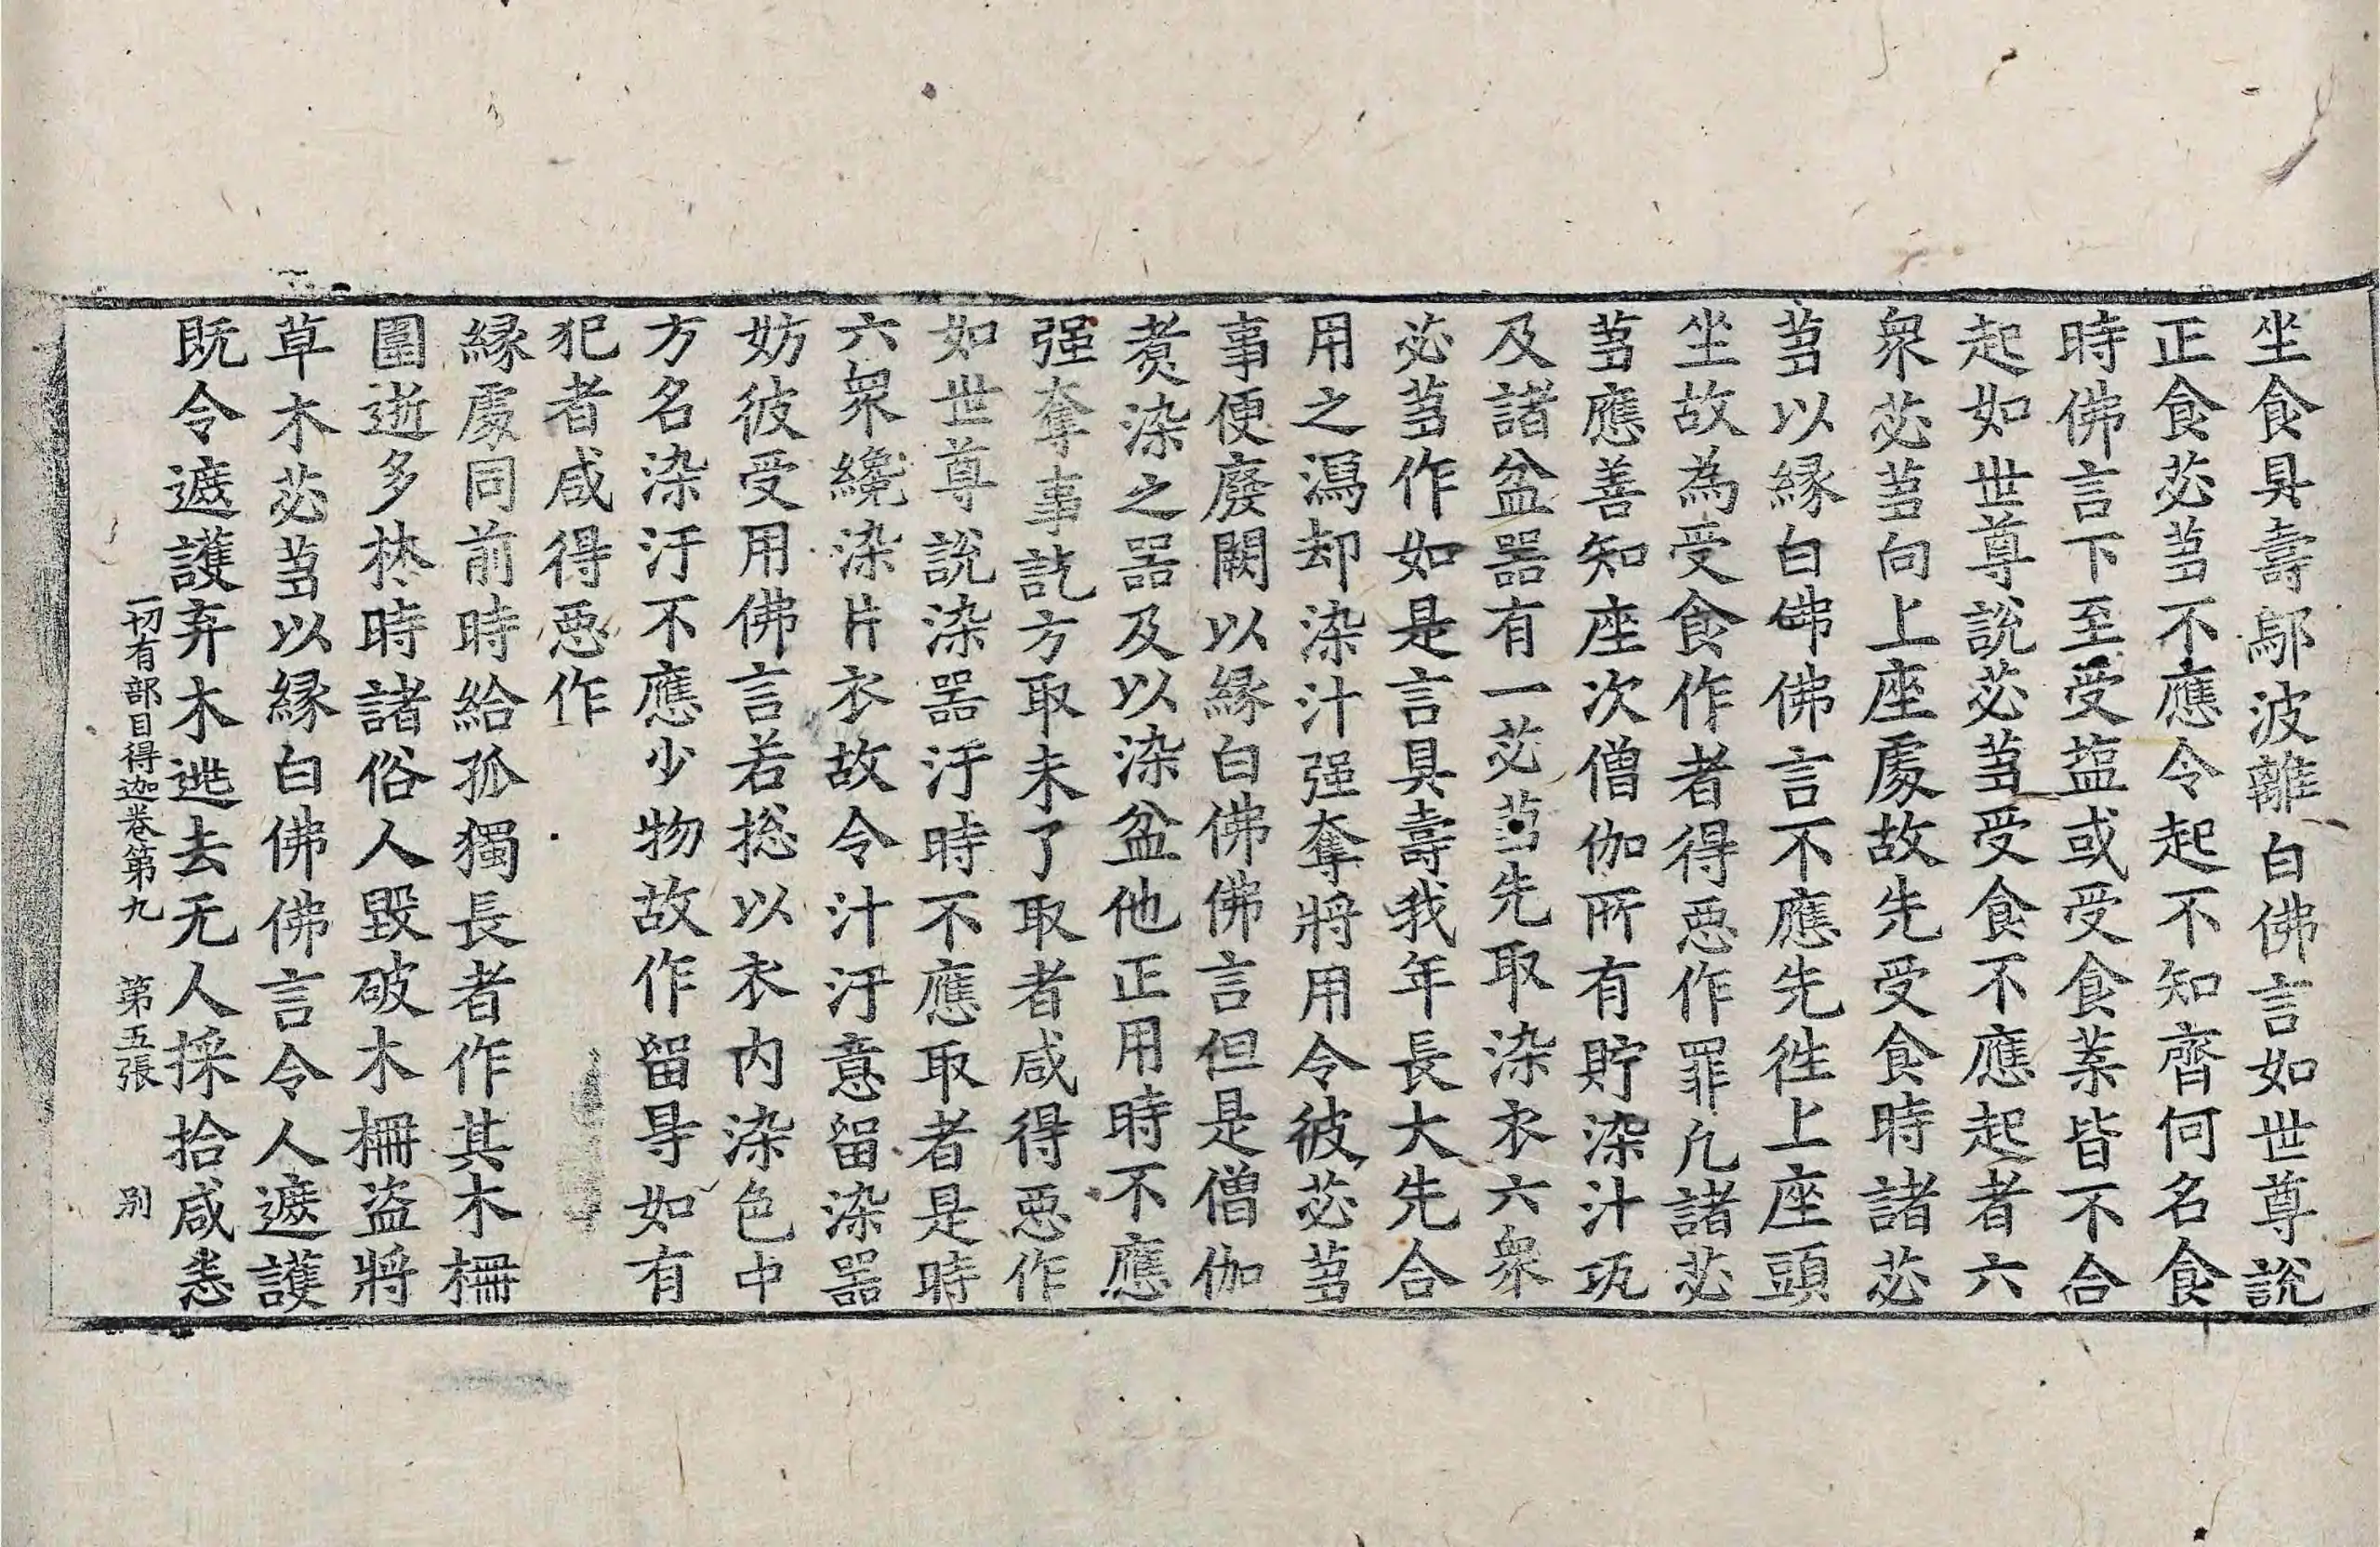 坐食具壽鄔波離白佛言如世尊說
正食苾蒭不應令起不知齊何名食
時佛言下至受塩或受食菜皆不合
起如世尊說苾蒭受食不應起者六
衆苾蒭向上座處故先受食時諸苾
蒭以緣白佛佛言不應先往上座頭
坐故為受食作者得惡作罪凡諸苾
蒭應善知座次僧伽所有貯染汁瓨
及諸盆器有一苾蒭先取染衣六衆
苾蒭作如是言具壽我年長大先合
用之瀉却染汁强奪將用令彼苾蒭
事便廢闕以緣白佛佛言但是僧伽
煑染之器及以染盆他正用時不應
强奪事訖方取未了取者咸得惡作
如世尊說染器汙時不應取者是時
六衆纔染片衣故令汁汙意留染器
妨彼受用佛言若揔以衣內染色中
方名染汙不應少物故作留㝵如有
犯者咸得惡作
緣處同前時給孤獨長者作其木柵
圍逝多林時諸俗人毀破木柵盜將
草木苾蒭以緣白佛佛言令人遮護
旣令遮護弃木逃去无人採拾咸悉
一切有部目得迦卷第九 第五張 別